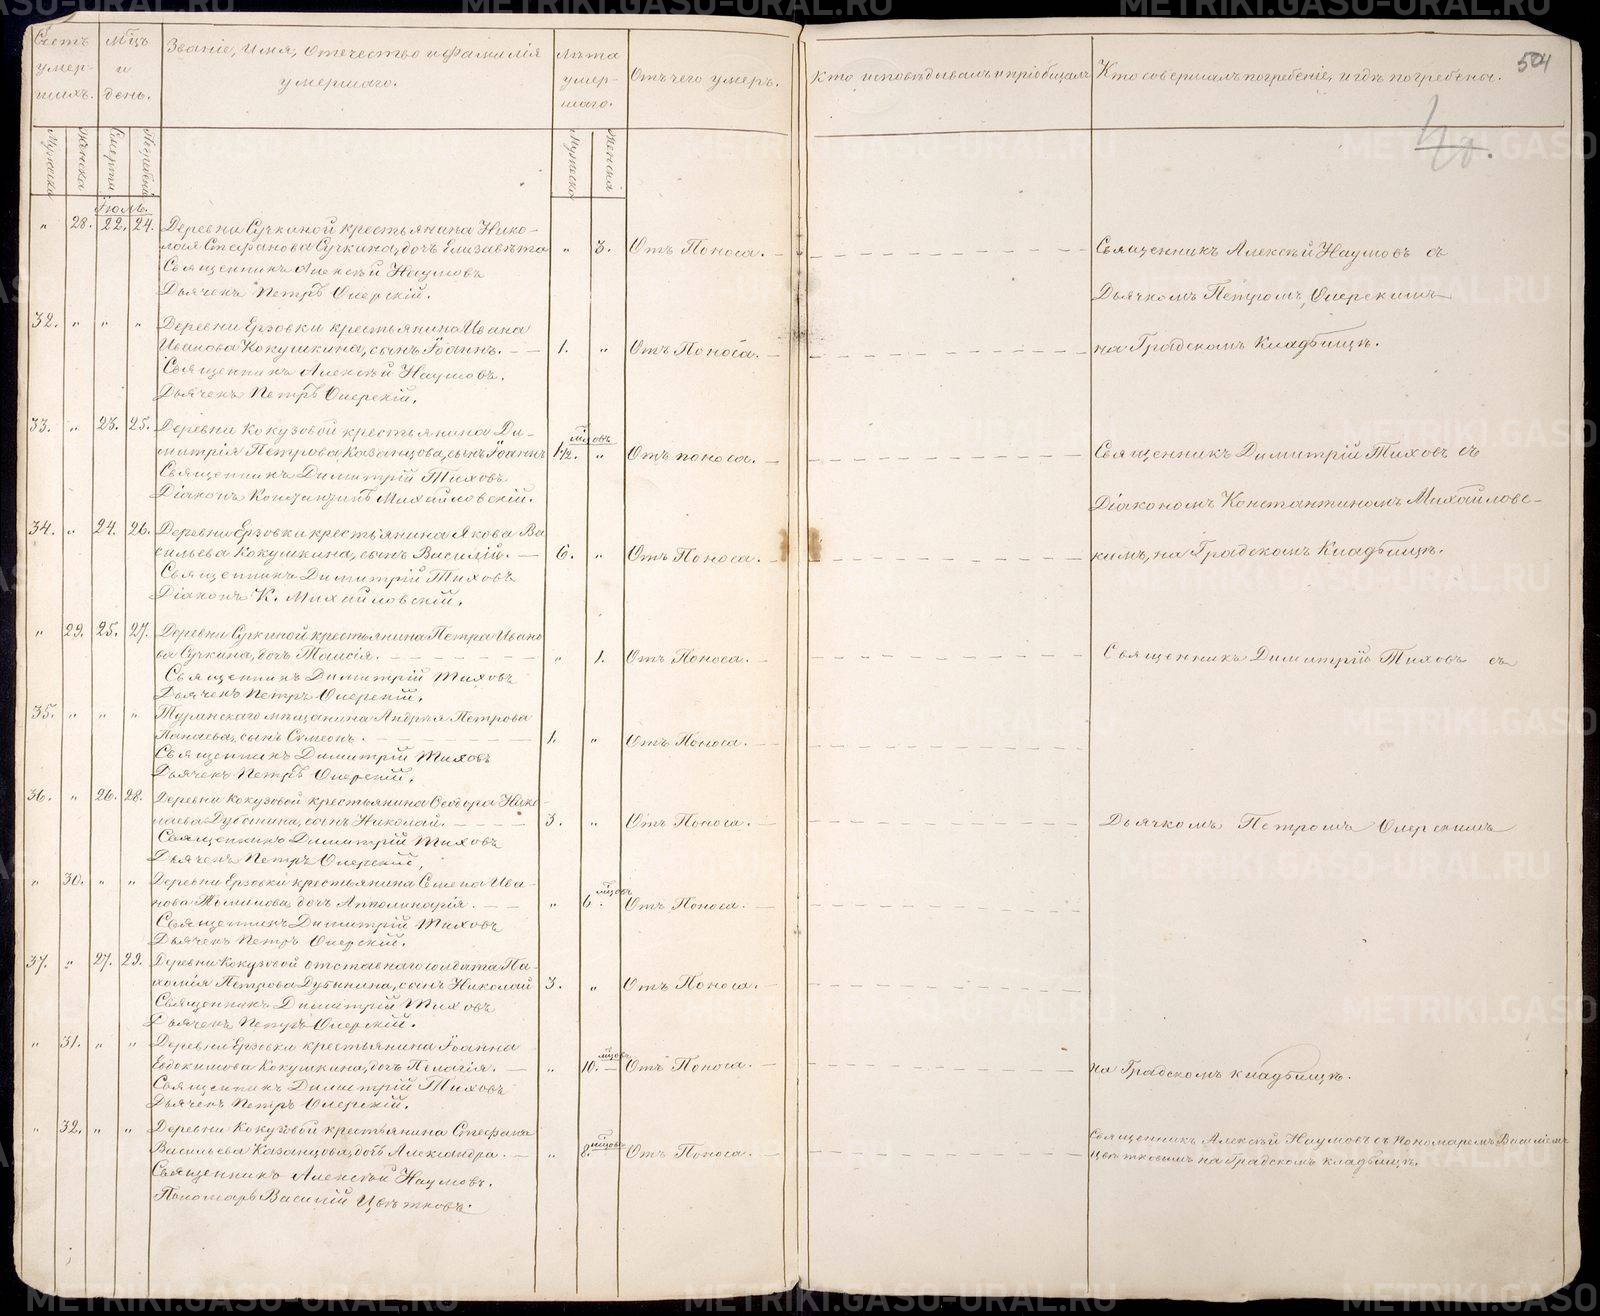 504
Счетъ умершихъ.
Мѣцъ и день.
Званіе, имя, отчество и фамилія умершаго.
Лѣта умершаго.
Отъ чего умеръ.
Кто исповѣдывалъ и пріобщалъ
Кто совершалъ погребеніе, и гдѣ погребены.
Мужска Женска Смерти Погребенія Мужска Женска
Іюль.
" 28. 22. 24. Деревни Сучкиной крестьянина Нико-
лая Стефанова Сучкина, дочь Елизавета " 3. Отъ Поноса. Священникъ Алексѣй Наумовъ съ
Священникъ Алексѣй Наумовъ
Дьячекъ Петръ Оперскій. Дьячкомъ Петромъ Оперскимъ
32. " " " Деревни Ерзовки крестьянина Ивана
Иванова Кокушкина, сынъ Іоаннъ. 1. " Отъ Поноса. на Градскомъ Кладбищѣ.
Священникъ Алексѣй Наумовъ.
Дьячекъ Петръ Оперскій.
33. " 23. 25. Деревни Кокузовой крестьянина Ди-
митрія Петрова Казанцова, сынъ Іоаннъ 1½ мѣцовъ " Отъ поноса. Священникъ Димитрій Тиховъ съ
Священникъ Димитрій Тиховъ
Діаконъ Константинъ Михайловскій. Діакономъ Константиномъ Михайловс-
34. " 24. 26. Деревни Ерзовки крестьянина Якова Ва
сильева Кокушкина, сынъ Василій. 6. " Отъ Поноса. кимъ, на Градскомъ Кладбищѣ.
Священникъ Димитрій Тиховъ
Діаконъ К. Михайловскій.
" 29. 25. 27. Деревни Сучкиной крестьянина Петра Ивано
ва Сучкина, дочь Таисія. " 1. Отъ Поноса. Священникъ Димитрій Тиховъ съ
Священникъ Димитрій Тиховъ
Дьячекъ Петръ Оперскій.
35. " " " Туринскаго мѣщанина Андрея Петрова
Папаева, сынъ Симеонъ. 1. " Отъ Поноса.
Священникъ Димитрій Тиховъ
Дьячекъ Петръ Оперскій.
36. " 26. 28. Деревни Кокузовой крестьянина Ѳедора Нико
лаева Дубынина, сынъ Николай. 3. " Отъ Поноса. Дьячкомъ Петромъ Оперскимъ
Священникъ Димитрій Тиховъ
Дьячекъ Петръ Оперскій,
" 30. " " Деревни Ерзовки крестьянина Семена Ива-
нова Томилова, дочь Апполинарія. " 6. мѣцовъ Отъ Поноса.
Священникъ Димитрій Тиховъ
Дьячекъ Петръ Оперскій.
37. " 27. 29. Деревни Кокузовой отставнаго солдата Па-
хомія Петрова Дубынина, сынъ Николай 3. " Отъ Поноса.
Священникъ Димитрій Тиховъ
Дьячекъ Петръ Оперскій.
" 31. " " Деревни Ерзовки крестьянина Іоанна
Евдокимова Кокушкина, дочь Пелагія. " 10. мѣцовъ Отъ Поноса. на Градскомъ кладбищѣ.
Священникъ Димитрій Тиховъ
Дьячекъ Петръ Оперскій.
" 32. " " Деревни Кокузовой крестьянина Стефана Священникъ Алексѣй Наумовъ съ Пономаремъ Василіемъ
Васильева Казанцова, дочь Александра. " 8. мѣцовъ Отъ Поноса. Цвѣтковымъ на Градскомъ кладбищѣ.
Священникъ Алексѣй Наумовъ.
Пономарь Василій Цвѣтковъ.
METRIKI.GASO-URAL.RU